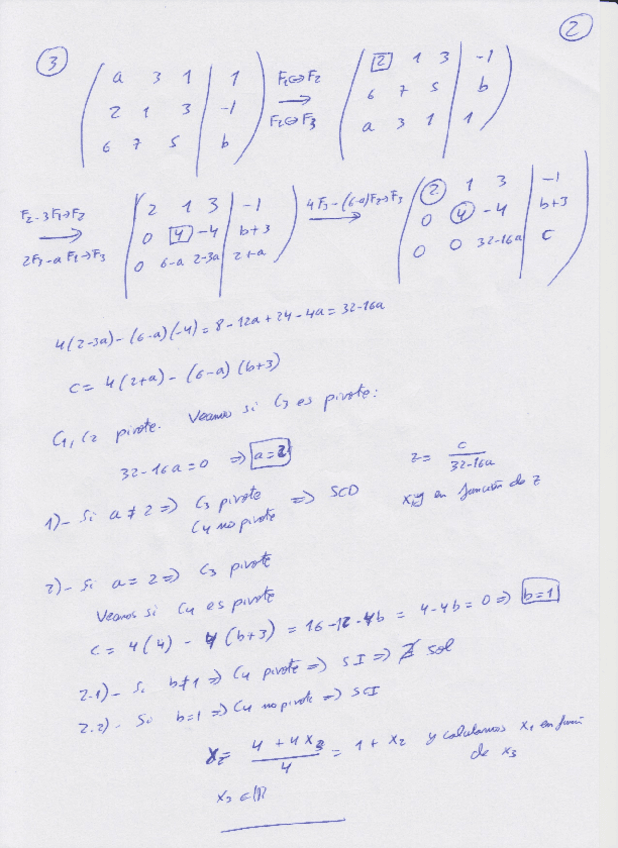 2
3
( a 3 1 | 1 ) F1<->F2 ( 2 1 3 | -1 )
( 2 1 3 | -1 ) → ( 6 7 5 | b )
( 6 7 5 | b ) F2<->F3 ( a 3 1 | 1 )
F2-3F1→F2 ( 2 1 3 | -1 ) 4F3-(6-a)F2→F3 ( 2 1 3 | -1 )
→ ( 0 4 -4 | b+3 ) → ( 0 4 -4 | b+3 )
2F3-aF1→F3 ( 0 6-a 2-3a | 2+a ) ( 0 0 32-16a | c )
4(2-3a)-(6-a)(-4)=8-12a+24-4a=32-16a
c=4(2+a)-(6-a)(b+3)
C1, C2 pivote. Veamos si C3 es pivote:
32-16a=0 => a=2
z= c/(32-16a)
1)- Si a≠2 => C3 pivote
C4 no pivote => SCD
x,y en función de z
2)- Si a=2 => C3 pivote
Veamos si C4 es pivote
c=4(4)-4(b+3)=16-12-4b=4-4b=0 => b=1
2.1)- Si b≠1 => C4 pivote => SI => ∄ sol
2.2)- Si b=1 => C4 no pivote => SCI
x2= (4+4x3)/4 = 1+x2 y calculamos x1 en función
de x3
x3 ∈ ℝ